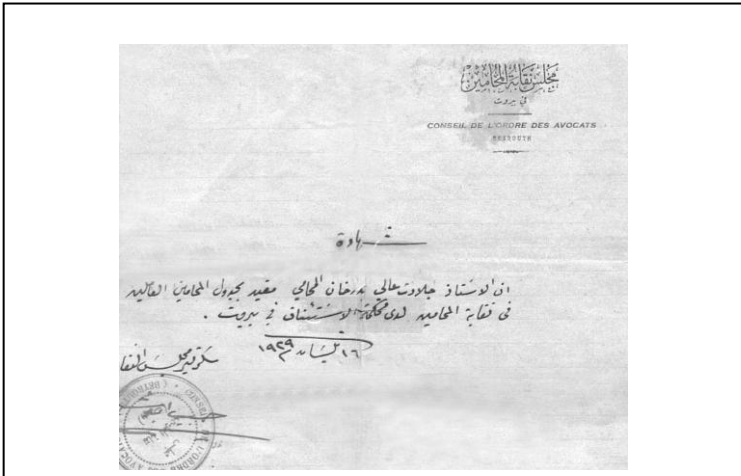 مجلس نقابة المحامين
في بيروت
CONSEIL DE L'ORDRE DES AVOCATS
BEYROUTH
شهادة
ان الاستاذ جلادت عالي بدرخان المحامي مقيد بجدول المحامين العاملين
في نقابة المحامين لدى محكمة الاستئناف في بيروت .
١٦ نيسان ١٩٢٩
سكرتير مجلس النقا
DE L'ORDRE DES AVOCA